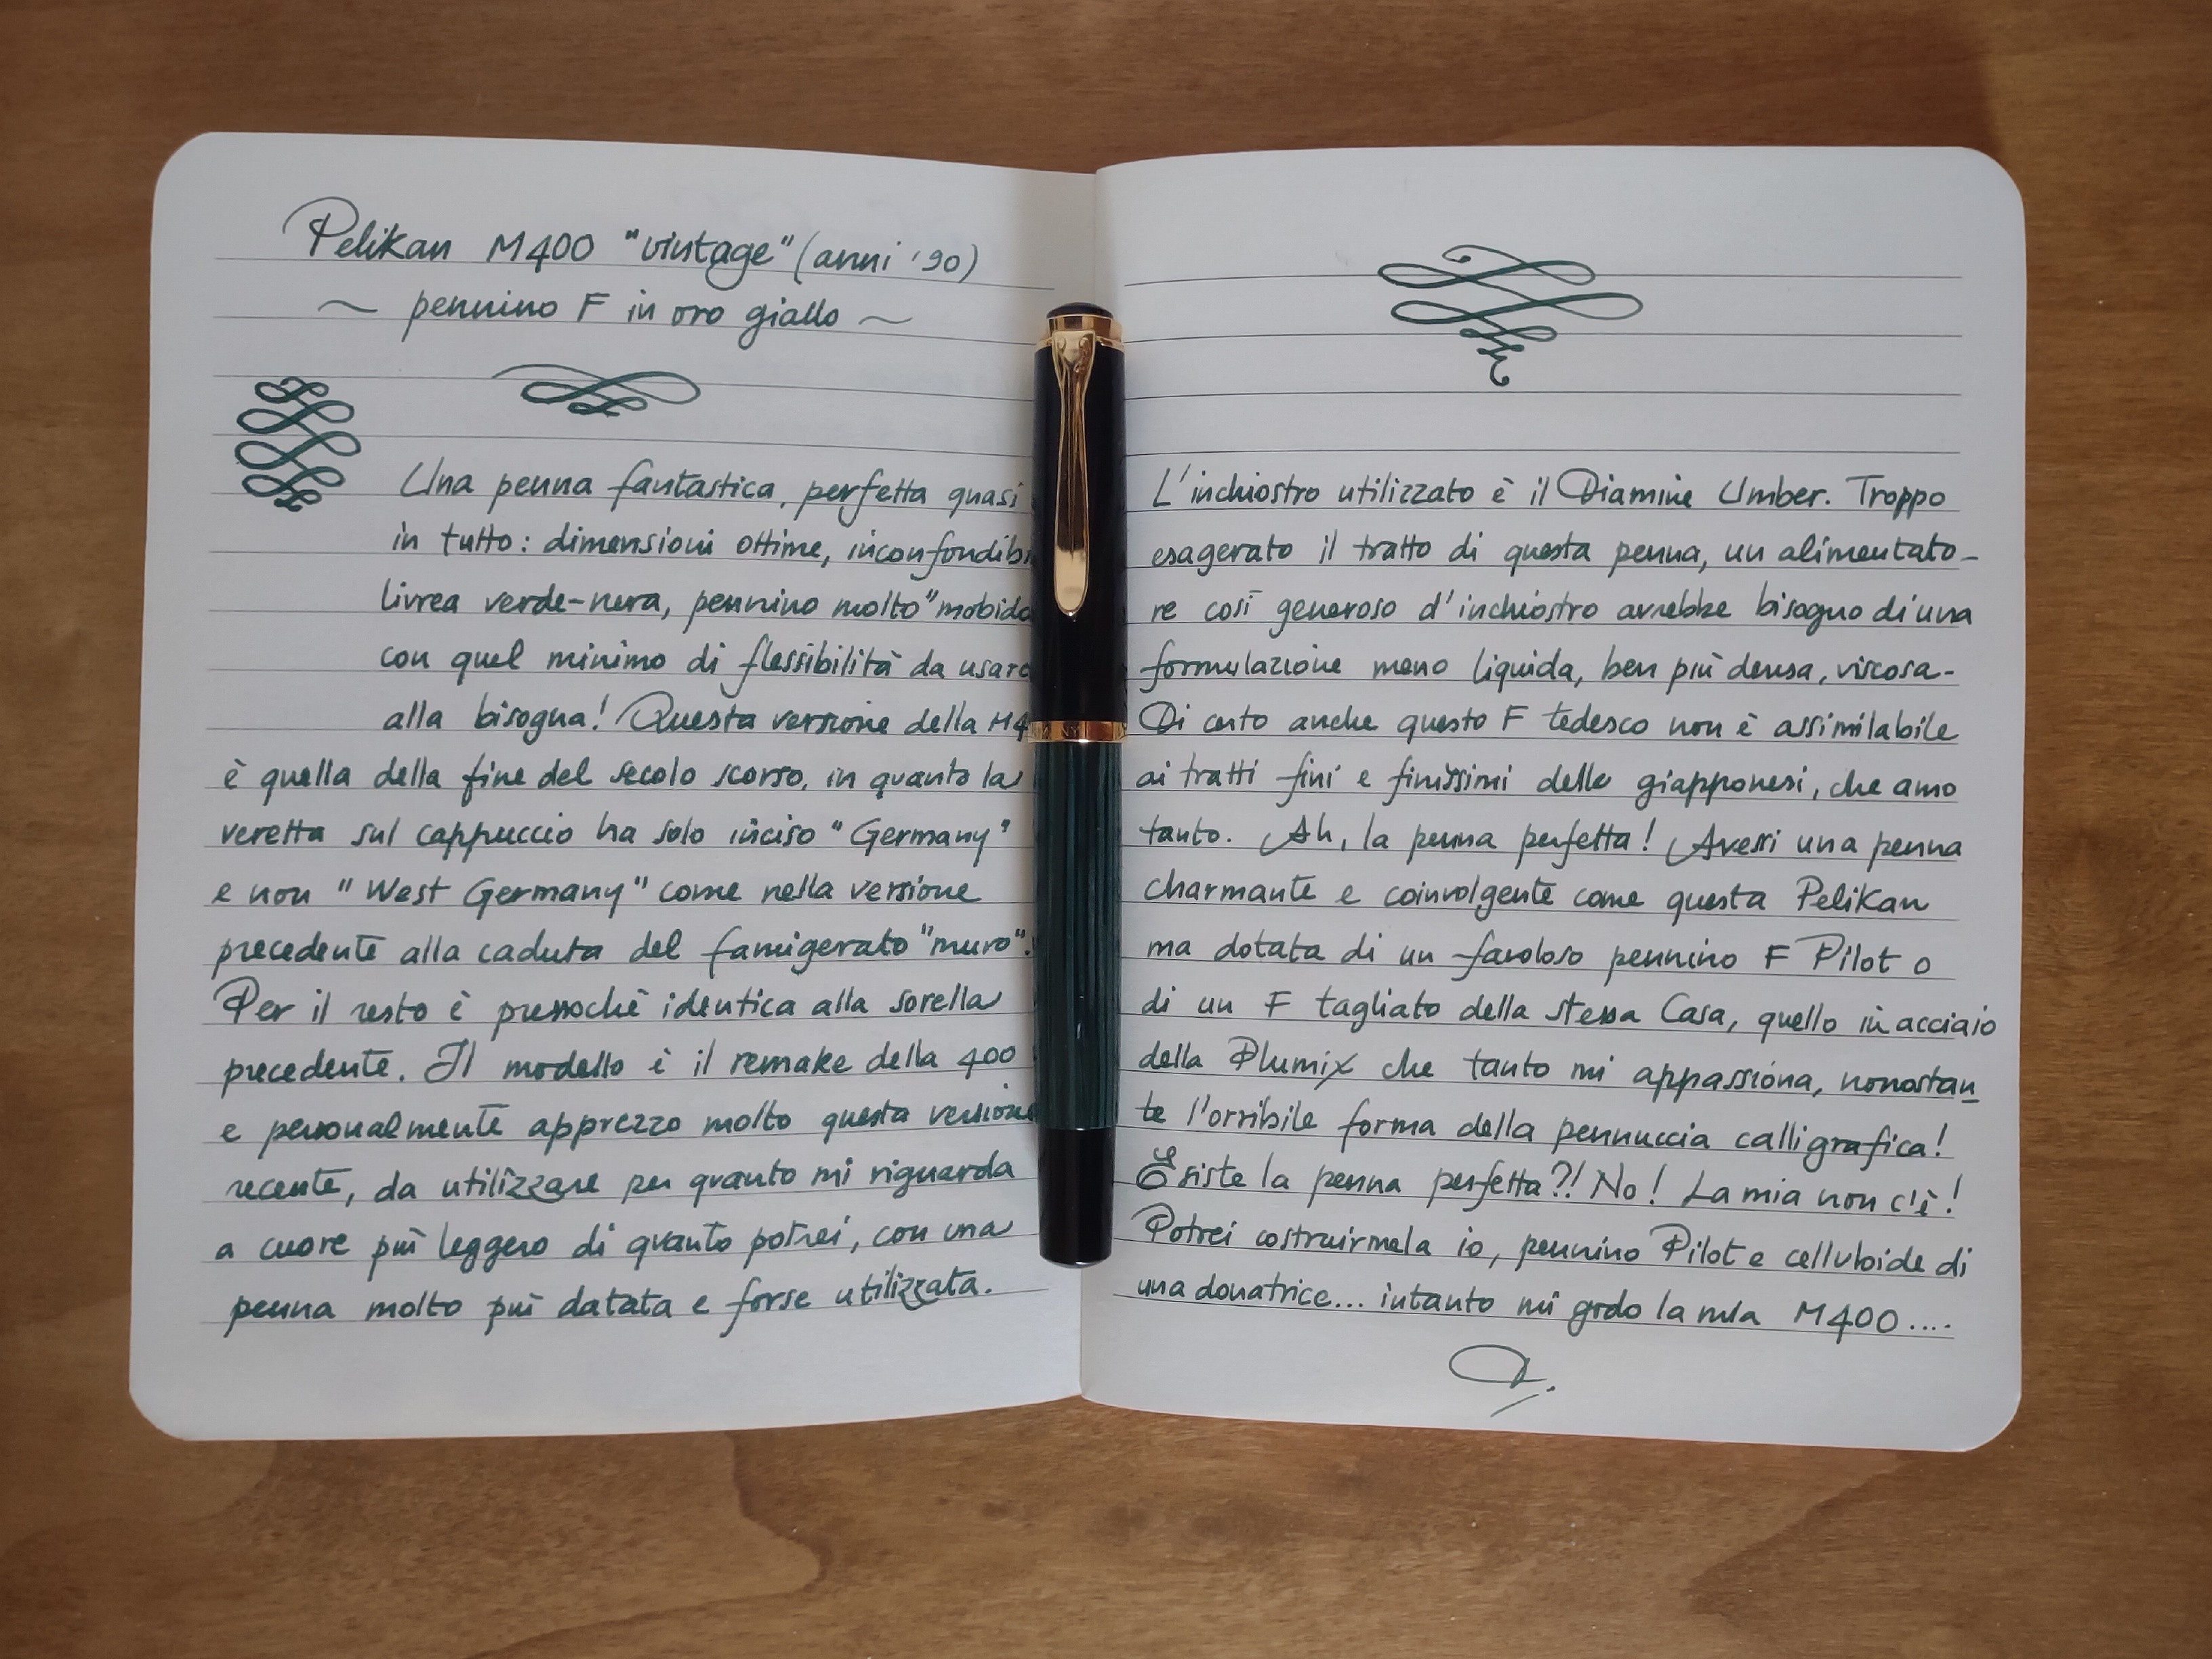 Pelikan M400 "vintage" (anni '90)
~ pennino F in oro giallo ~
Una penna fantastica, perfetta quasi
in tutto: dimensioni ottime, inconfondibi
livrea verde-nera, pennino molto "mobido
con quel minimo di flessibilità da usare
alla bisogna! Questa versione della M4
è quella della fine del secolo scorso, in quanto la
veretta sul cappuccio ha solo inciso "Germany"
e non "West Germany" come nella versione
precedente alla caduta del famigerato "muro".
Per il resto è pressoché identica alla sorella
precedente. Il modello è il remake della 400
e personalmente apprezzo molto questa versione
recente, da utilizzare per quanto mi riguarda
a cuore più leggero di quanto potrei, con una
penna molto più datata e forse utilizzata.
L'inchiostro utilizzato è il Diamine Umber. Troppo
esagerato il tratto di questa penna, un alimentato-
re così generoso d'inchiostro avrebbe bisogno di una
formulazione meno liquida, ben più densa, viscosa-
Di certo anche questo F tedesco non è assimilabile
ai tratti fini e finissimi delle giapponesi, che amo
tanto. Ah, la penna perfetta! Avessi una penna
charmante e coinvolgente come questa Pelikan
ma dotata di un favoloso pennino F Pilot o
di un F tagliato della stessa Casa, quello in acciaio
della Plumix che tanto mi appassiona, nonostan
te l'orribile forma della pennuccia calligrafica!
Esiste la penna perfetta?! No! La mia non c'è!
Potrei costruirmela io, pennino Pilot e celluloide di
una donatrice... intanto mi godo la mia M400....